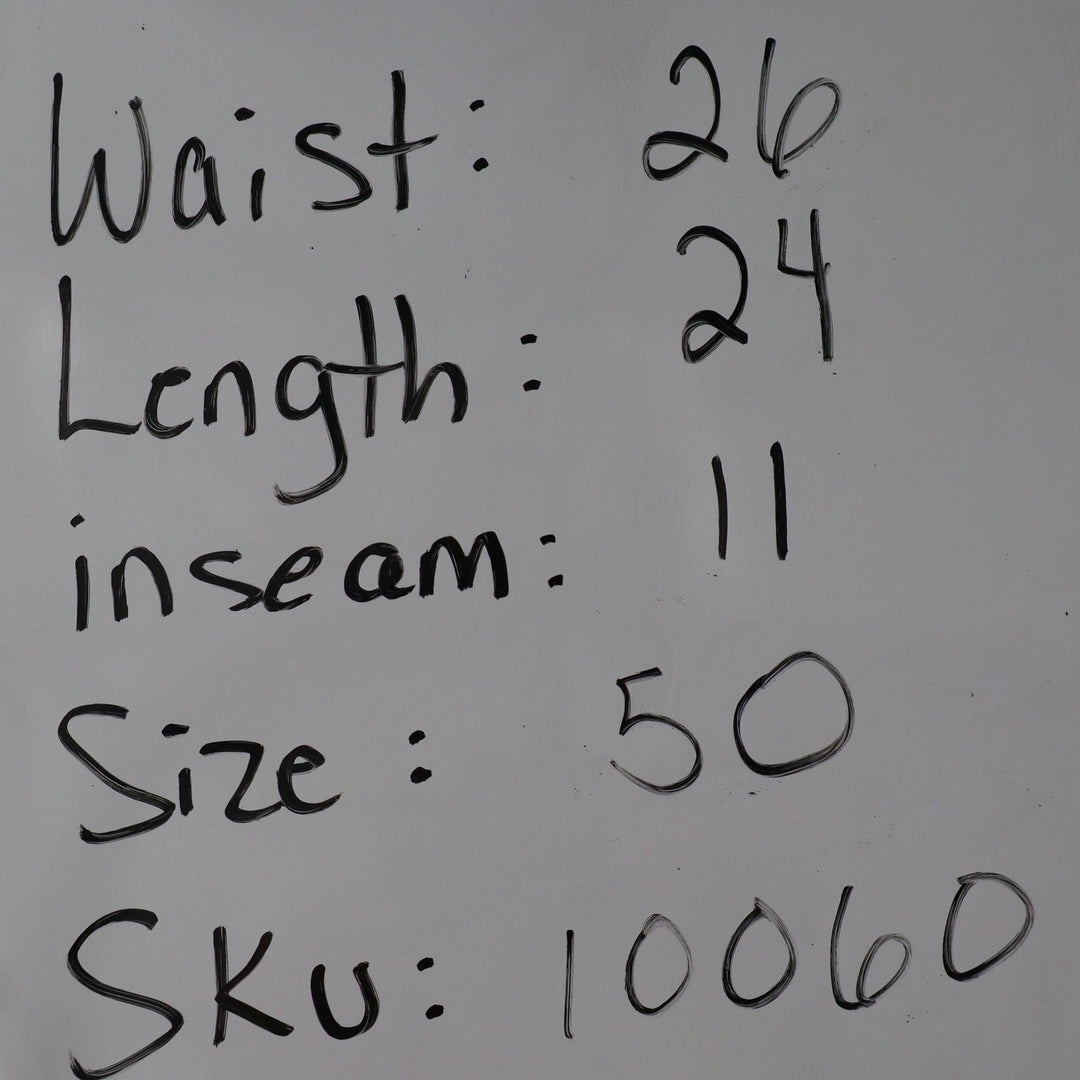 Waist: 26
Length: 24
inseam: 11
Size: 50
SKU: 10060